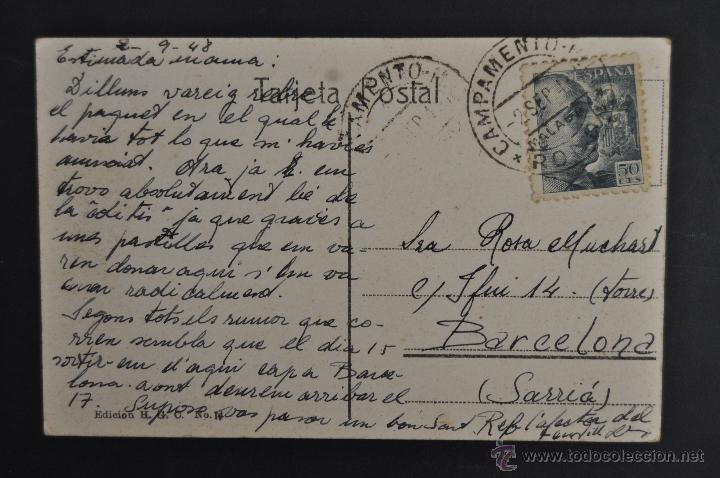 2-9-48
Estimada mama:
Tarjeta Postal
Dilluns vareig rebre
el paquet en el qual hi
havia tot lo que m'havies
anunciat. Ara ja em
trovo absolutament bé de
la "otitis" ja que gracies a
unes pastilles que em va-
ren donar aqui s'em va
curar radicalment.
Segons tots els rumor que co-
rren sembla que el dia 15
sortir-em d'aqui cap a Barce-
lona aont deurem arribar el
17. Suposo vas pasar un bon Sant
Edicion H. G. C. No.
CAMPAMENTO
2 SEP
MALAGA
ESPAÑA
50 CTS
Sra Rosa Muchart
c/ Ifni 14 (torre)
Barcelona
(Sarriá)
del
www.todocoleccion.net